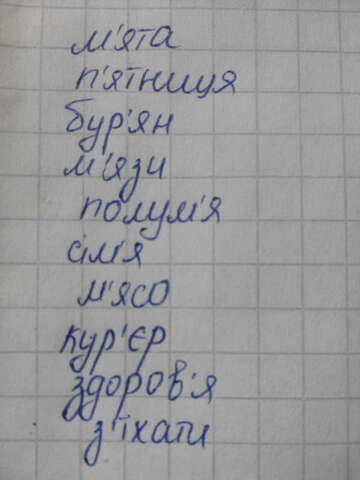 м'ята
п'ятниця
бур'ян
м'язи
полум'я
сім'я
м'ясо
кур'єр
здоров'я
з'їхати